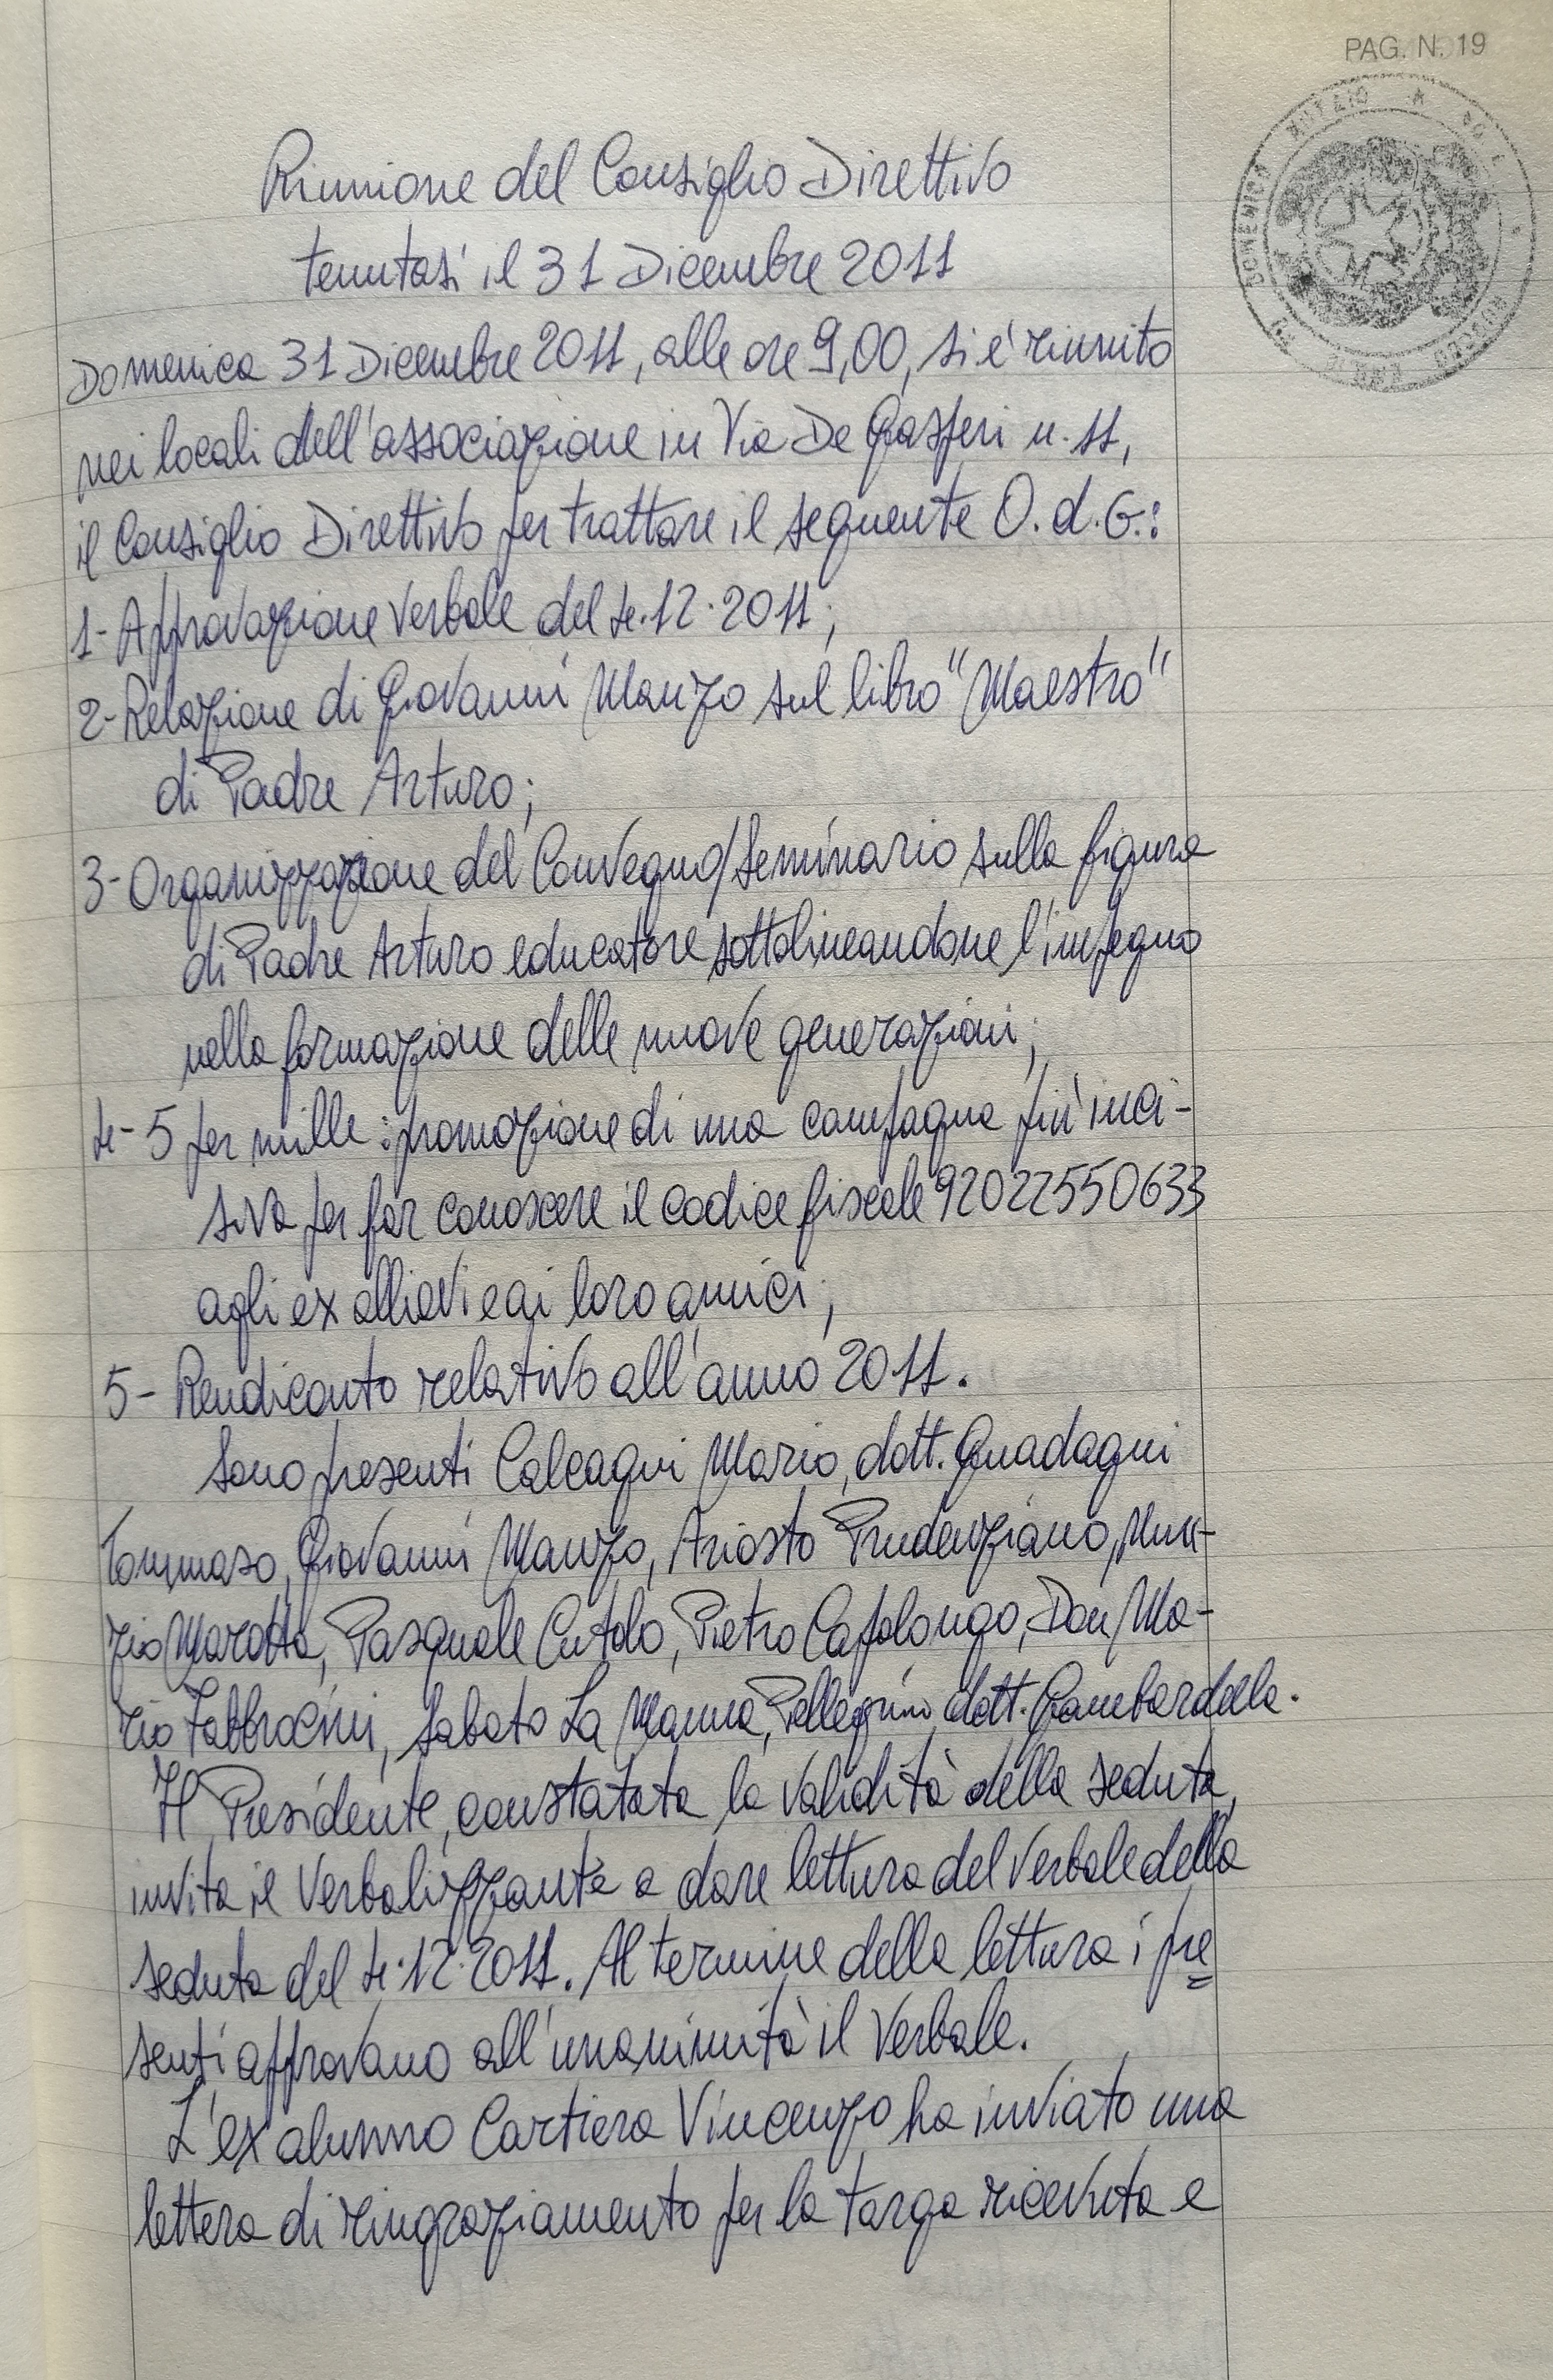 PAG. N. 19
Riunione del Consiglio Direttivo
tenutasi il 31 Dicembre 2011
Domenica 31 Dicembre 2011, alle ore 9,00, si è riunito
nei locali dell'associazione in Via De Gasperi n. 11,
il Consiglio Direttivo per trattare il seguente O.d.G.:
1- Approvazione verbale del 4.12.2011;
2- Relazione di Giovanni Manzo sul libro "Maestro"
di Padre Arturo;
3- Organizzazione del Convegno/Seminario sulla figura
di Padre Arturo educatore sottolineandone l'impegno
nella formazione delle nuove generazioni;
4- 5 per mille: promozione di una campagna più inci-
siva per far conoscere il codice fiscale 92022550633
agli ex allievi e ai loro amici;
5- Rendiconto relativo all'anno 2011.
Sono presenti Calcagni Mario, dott. Guadagni
Tommaso, Giovanni Manzo, Ariosto Prudenziano, Nun-
zio Marotta, Pasquale Cutolo, Pietro Capolongo, Don Ma-
rio Fabbrocini, Sabato La Manna, Pellegrino, dott. Gambardella.
Il Presidente, constatata la validità della seduta,
invita il Verbalizzante a dare lettura del verbale della
seduta del 4.12.2011. Al termine della lettura i pre
senti approvano all'unanimità il Verbale.
L'ex alunno Cartiera Vincenzo ha inviato una
lettera di ringraziamento per la targa ricevuta e